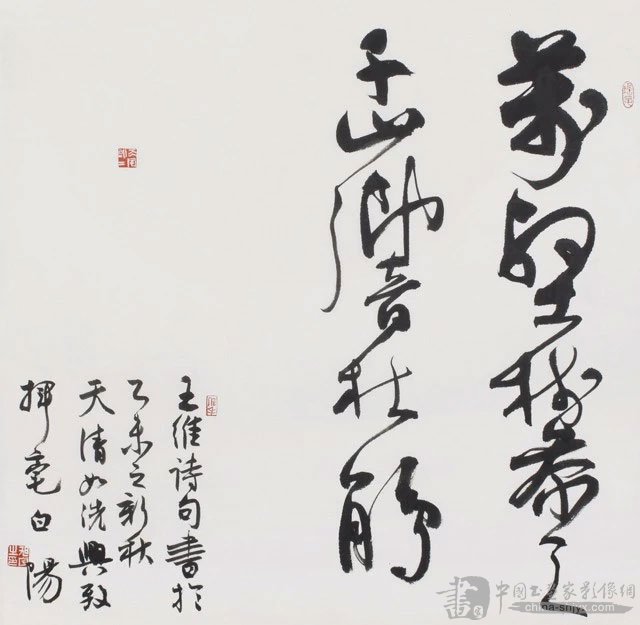 萬壑樹參天
千山響杜鵑
王維詩句書於
乙未之新秋
天清如洗興致
揮毫白陽
中國书画家影像網